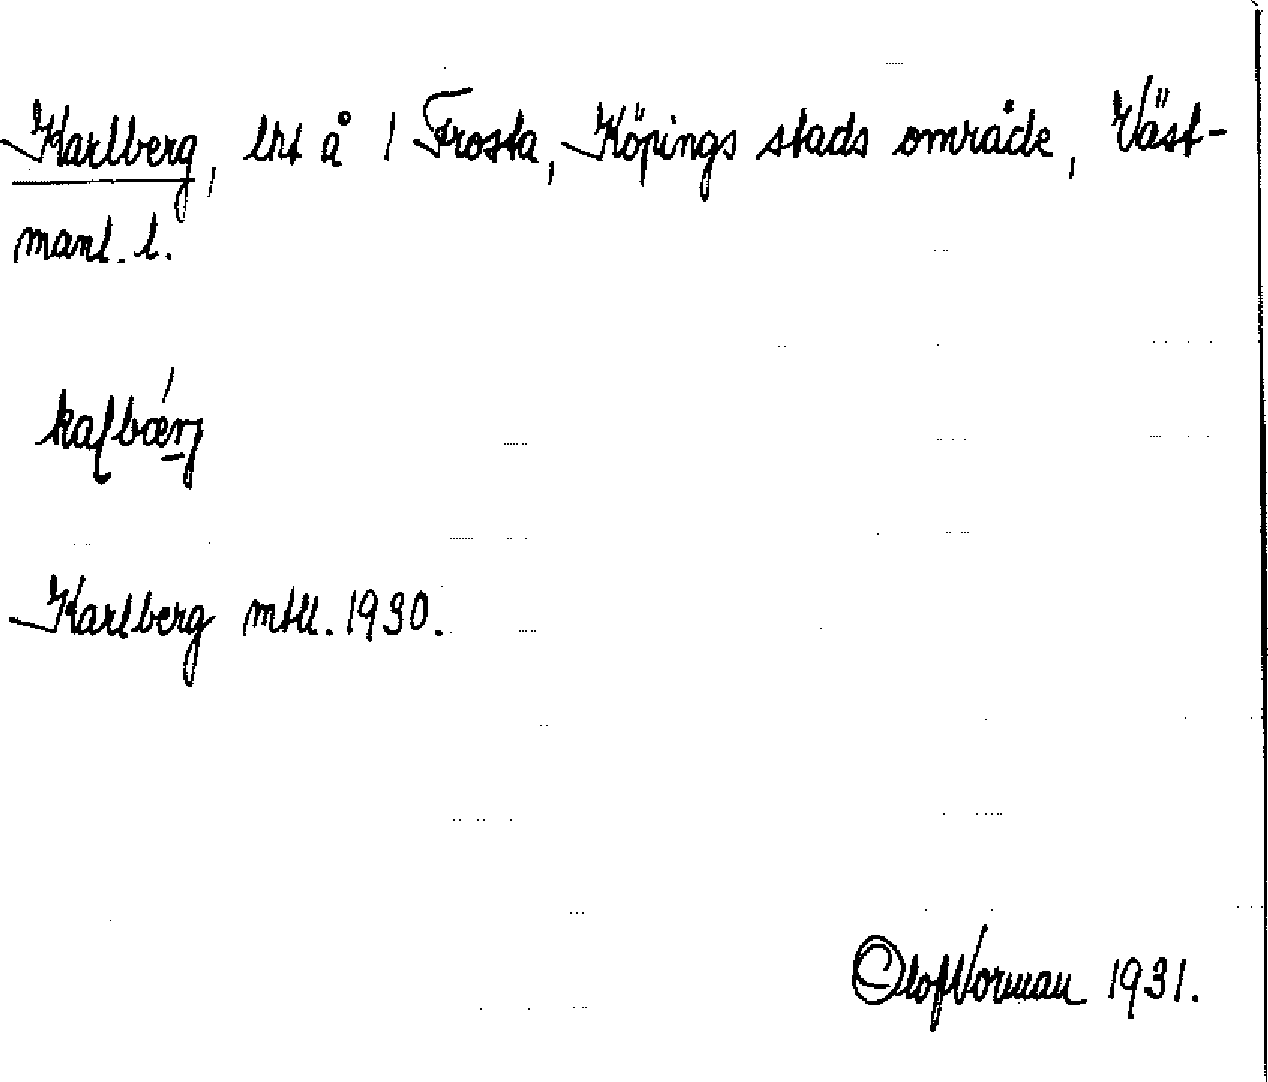 Karlberg, lht å 1 Frosta, Köpings stads område, Väst-
manl. l.
Karlberg mtll. 1930.
Olof Norman 1931.